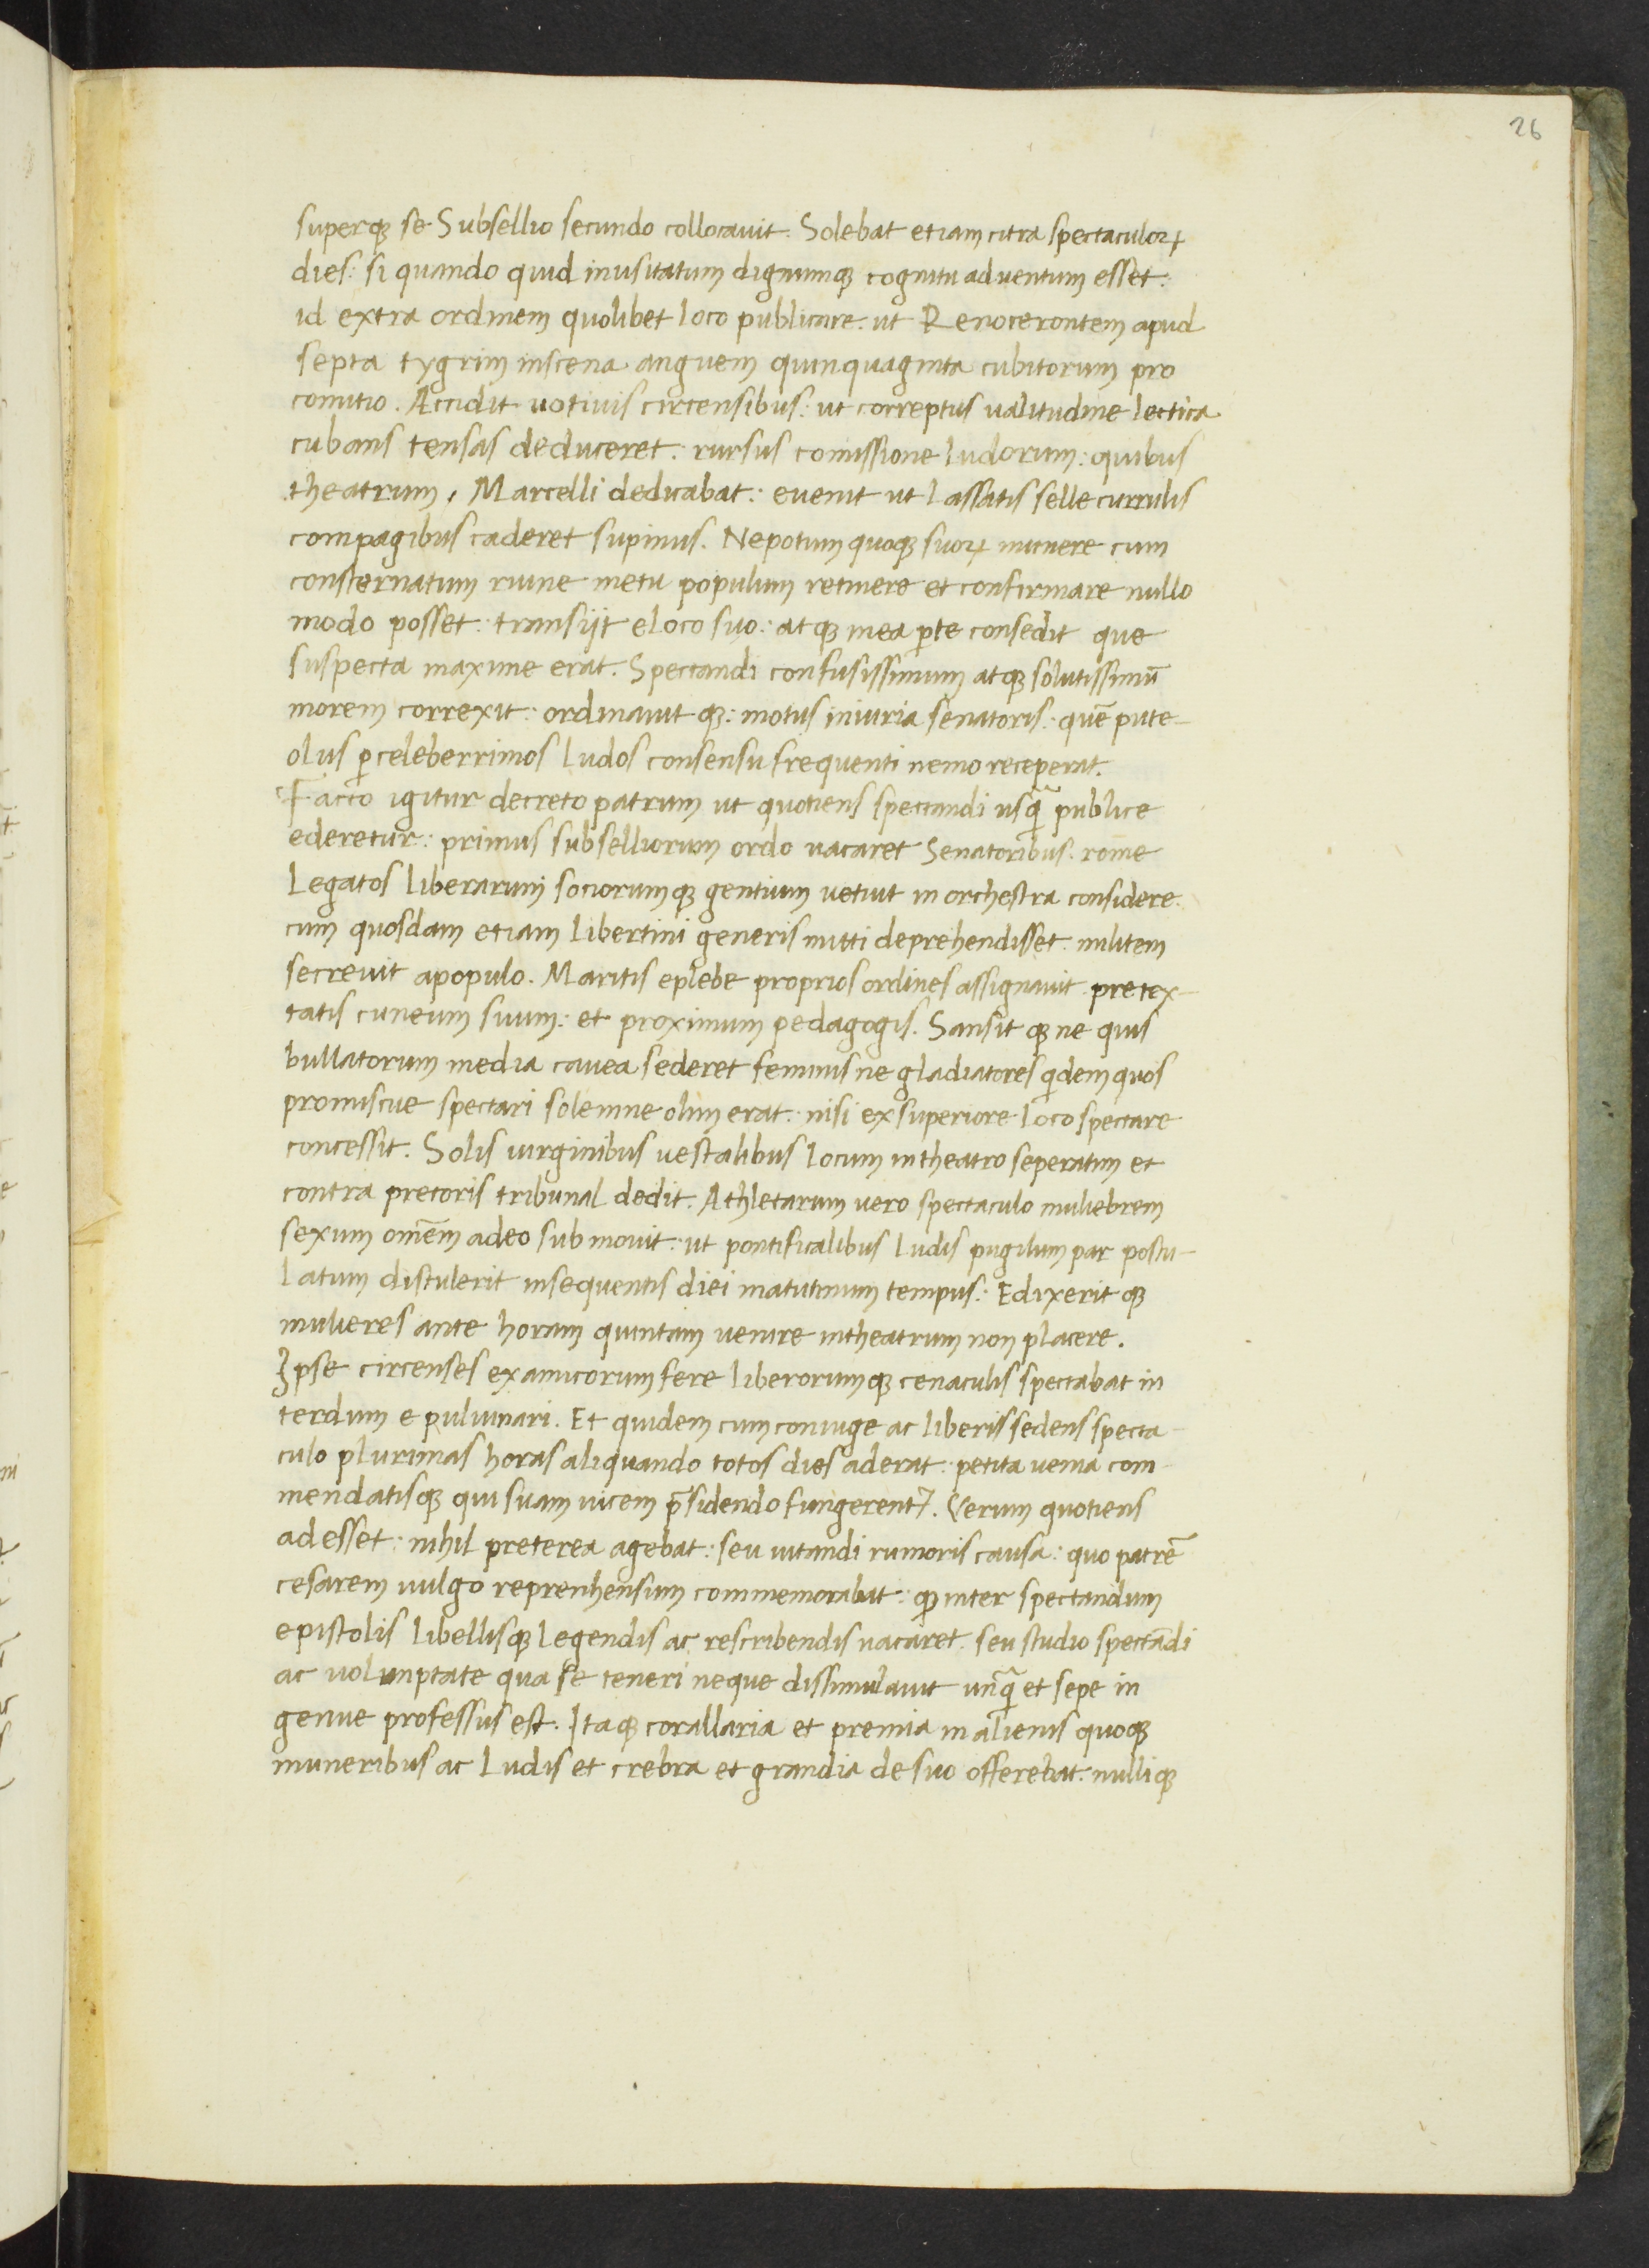 26
superq; se Subsellio secundo collocauit. Solebat etiam citra spectaculoꝝ
dies: si quando quid inusitatum dignumq; cognitu aduentum esset:
id extra ordinem quolibet loco publicare. ut Renocerontem apud
septa tygrim inscena anguem quinquaginta cubitorum pro
comitio. Accidit uotiuis circensibus: ut correptus ualitudine lectica
cubans tensas deduceret: rursus comissione ludorum: quibus
theatrum, Marcelli dedicabat: euenit ut lassatis selle currulis
compagibus caderet supinus. Nepotum quoq; suoꝝ munere cum
consternatum ruine metu populum retinere et confirmare nullo
modo posset: transijt eloco suo: atq; inea ꝑte consedit que
suspecta maxime erat. Spectandi confusissimum atq; solutissimū
morem correxit: ordinauit q;: motus iniuria senatoris: quē pute-
olus ꝑceleberrimos ludos consensu frequenti nemo receperat.
Facto igitur decreto patrum ut quotiens spectandi usq̄ publice
ederetur: primus subselliorum ordo uacaret Senatoribus. rome
legatos liberarum sociorumq; gentium uetuit in orchestra considere.
cum quosdam etiam libertini generis mitti deprehendisset. militem
secreuit apopulo. Maritis eplebe proprios ordines assignauit pretex-
tatis cuneum suum: et proximum pedagogis. Sansit q; ne quis
bullatorum media cauea sederet feminis ne gladiatores qidem quos
promiscue spectari solemne olim erat: nisi exsuperiore loco spectare
concessit. Solis uirginibus uestalibus locum intheatro seperatim et
contra pretoris tribunal dedit. Athletarum uero spectaculo muliebrem
sexum omēm adeo submouit: ut pontificalibus ludis pugilum par postu-
latum distulerit insequentis diei matutinum tempus: Edixerit q;
mulieres ante horam quintam uenire intheatrum non placere.
Ipse circenses examicorum fere liberorumq; cenaculis spectabat in
terdum e puluinari. Et quidem cum coniuge ac liberis sedens specta-
culo plurimas horas aliquando totos dies aderat: petita uenia com-
mendatisq; qui suam uicem p̄sidendo fungerentꝛ. Verum quotiens
adesset: nihil preterea agebat: seu uitandi rumoris causa: quo patrē
cesarem uulgo reprenhensum commemorabat: ꝙ inter spectandum
epistolis libellisq; legendis ac rescribendis uacaret. seu studio spectādi
ac uolumptate qua se teneri neque dissimulauit unq̄ et sepe in
genue professus est. Itaq; corallaria et premia in alienis quoq;
muneribus ac ludis et crebra et grandia desuo offerebat: nulliq;